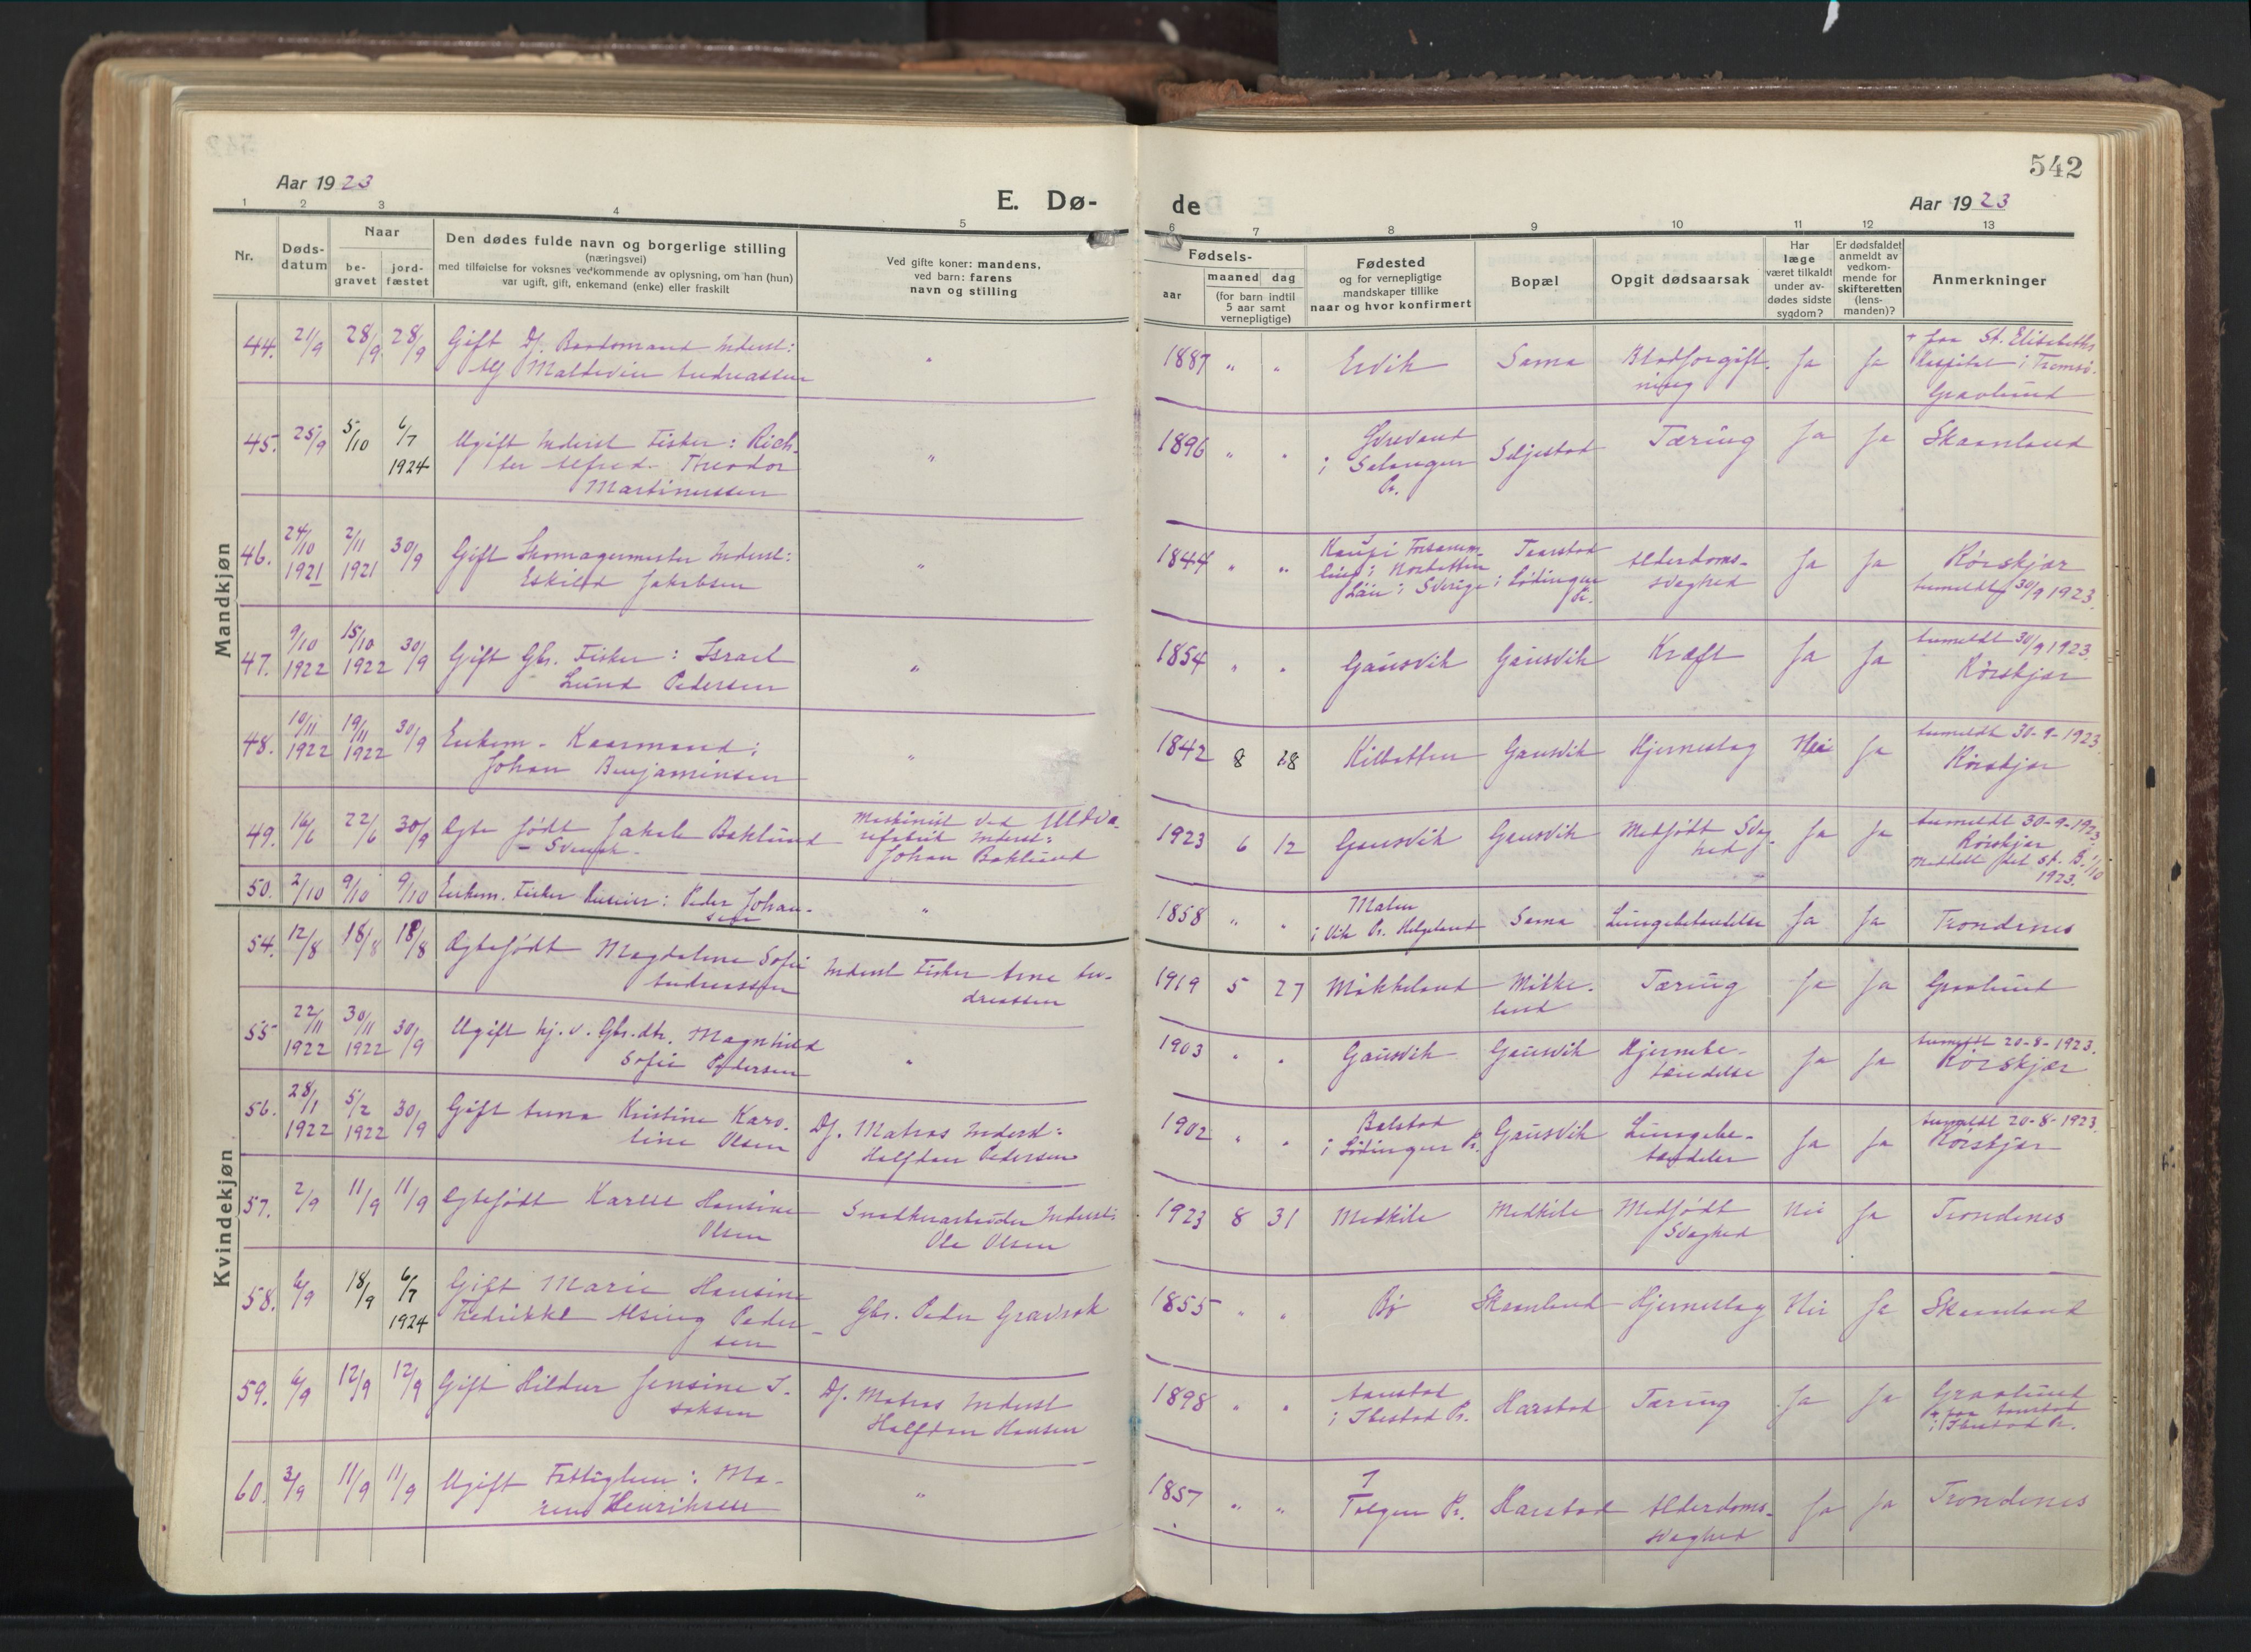 542
Aar 1923
E. Dø-
de
Aar 1923
1 2 3 4 5
6 7 8 9 10 11 12 13
Nr.
Døds-
datum
Naar
be-
gravet
jord-
fæstet
Den dødes fulde navn og borgerlige stilling
(næringsvei)
med tilføielse for voksnes vedkommende av oplysning, om han (hun)
var ugift, gift, enkemand (enke) eller fraskilt
Ved gifte koner: mandens,
ved barn: farens
navn og stilling
Fødsels-
aar
maaned
dag
(for barn indtil
5 aar samt
vernepligtige)
Fødested
og for vernepligtige
mandskaper tillike
naar og hvor konfirmert
Bopæl
Opgit dødsaarsak
Har
læge
været tilkaldt
under av-
dødes sidste
sygdom?
Er dødsfaldet
anmeldt av
vedkom-
mende for
skifteretten
(lens-
manden)?
Anmerkninger
Mandkjøn
44. 21/9 28/9 28/9 Gift Dj. Baadsmand Inderst: " 1887 " " Ervik Sama Blodforgift- Ja Ja + paa St. Elisabeths
Alf Maltevin Andreassen ning hospital i Tromsø.
Gravlund
45. 25/9 5/10 6/7 Ugift Inderst Fisker: Rich- " 1896 " " Skaanland
1924 ter Alfred Theodor i Salangen Seljestad Tæring Ja Ja
Martinussen Pr.
46. 24/10 2/11 30/9 Gift Skomagermester Inderst: " 1844 " " Taarstad Alderdoms- Ja Ja Rørskjær
1921 1921 Eskild Jakobsen Län i Sverige i Lødingen Pr. svaghed Anmeldt 30/9 1923.
47. 9/10 15/10 30/9 Gift Gbr. Fisker: Israel " 1854 " " Gausvik Gausvik Kræft Ja Ja Anmeldt 30/9 1923.
1922 1922 Lund Pedersen Rørskjær
48. 10/11 19/11 30/9 Enkem. Kaarmand: " 1842 8 28 Kilbotten Gausvik Hjerneslag Nei Ja Anmeldt 30-9-1923.
1922 1922 Johan Benjaminsen Rørskjær
49. 16/6 22/6 30/9 Ægte født Jakob Baklund Maskinist ved Uldva- 1923 6 12 Gausvik Gausvik Medfødt Svag- Ja Ja Anmeldt 30-9-1923.
– Svensk – refabrik Inderst: hed Rørskjær
Johan Baklund Meddelt det st. B. 1/10
1923.
50. 2/10 9/10 9/10 Enkem. Fisker Huseier: Peder Johan- " 1858 " " i Vik Pr. Helgeland Sama Lungebetændelse Ja Ja Trondenes
sen
Kvindekjøn
54. 12/8 18/8 18/8 Ægtefødt Magdalene Sofie Inderst Fisker Arne An- 1919 5 27 Mikkelund Mikke- Tæring Ja Ja Gravlund
Andreassen dreassen lund
55 22/11 30/11 30/9 Ugift hj. v. Gbr. dtr. Magnhild " 1903 " " Gausvik Gausvik Hjernebe- Ja Ja Anmeldt 20-8-1923.
1922 1922 Sofie Pedersen tændelse Rørskjær
56. 28/1 5/2 30/9 Gift Anna Kristine Karo- Dj. Matros Inderst: 1902 " " Balstad Gausvik Lungebe- Ja Ja Anmeldt 20-8-1923.
1922 1922 line Olsen Halfdan Pedersen i Lødingen Pr. tændelse Rørskjær
57. 2/9 11/9 11/9 Ægtefødt Karen Hansine Snedkerarbeider Inderst: 1923 8 31 Medkila Medkila Medfødt Nei Ja Trondenes
Olsen Ole Olsen Svaghed
58. 6/9 18/9 6/7 Gift Marie Hansine Gbr. Peder Gravrok 1855 " " Bø Skaanland Hjerneslag Nei Ja Skaanland
1924 Fredrikke Alsing Peder-
sen
59. 6/9 12/9 12/9 Gift Hildur Jensine I- Dj. Matros Inderst 1898 " " Aanstad Harstad Tæring Ja Ja Gravlund
saksen Halfdan Hansen i Ibestad Pr. + paa Aanstad
i Ibestad Pr.
60. 3/9 11/9 11/9 Ugift Fattiglem: Ma- " 1857 " " Tolgen Pr. Harstad Alderdoms- Ja Ja Trondenes
ren Henriksen svaghed